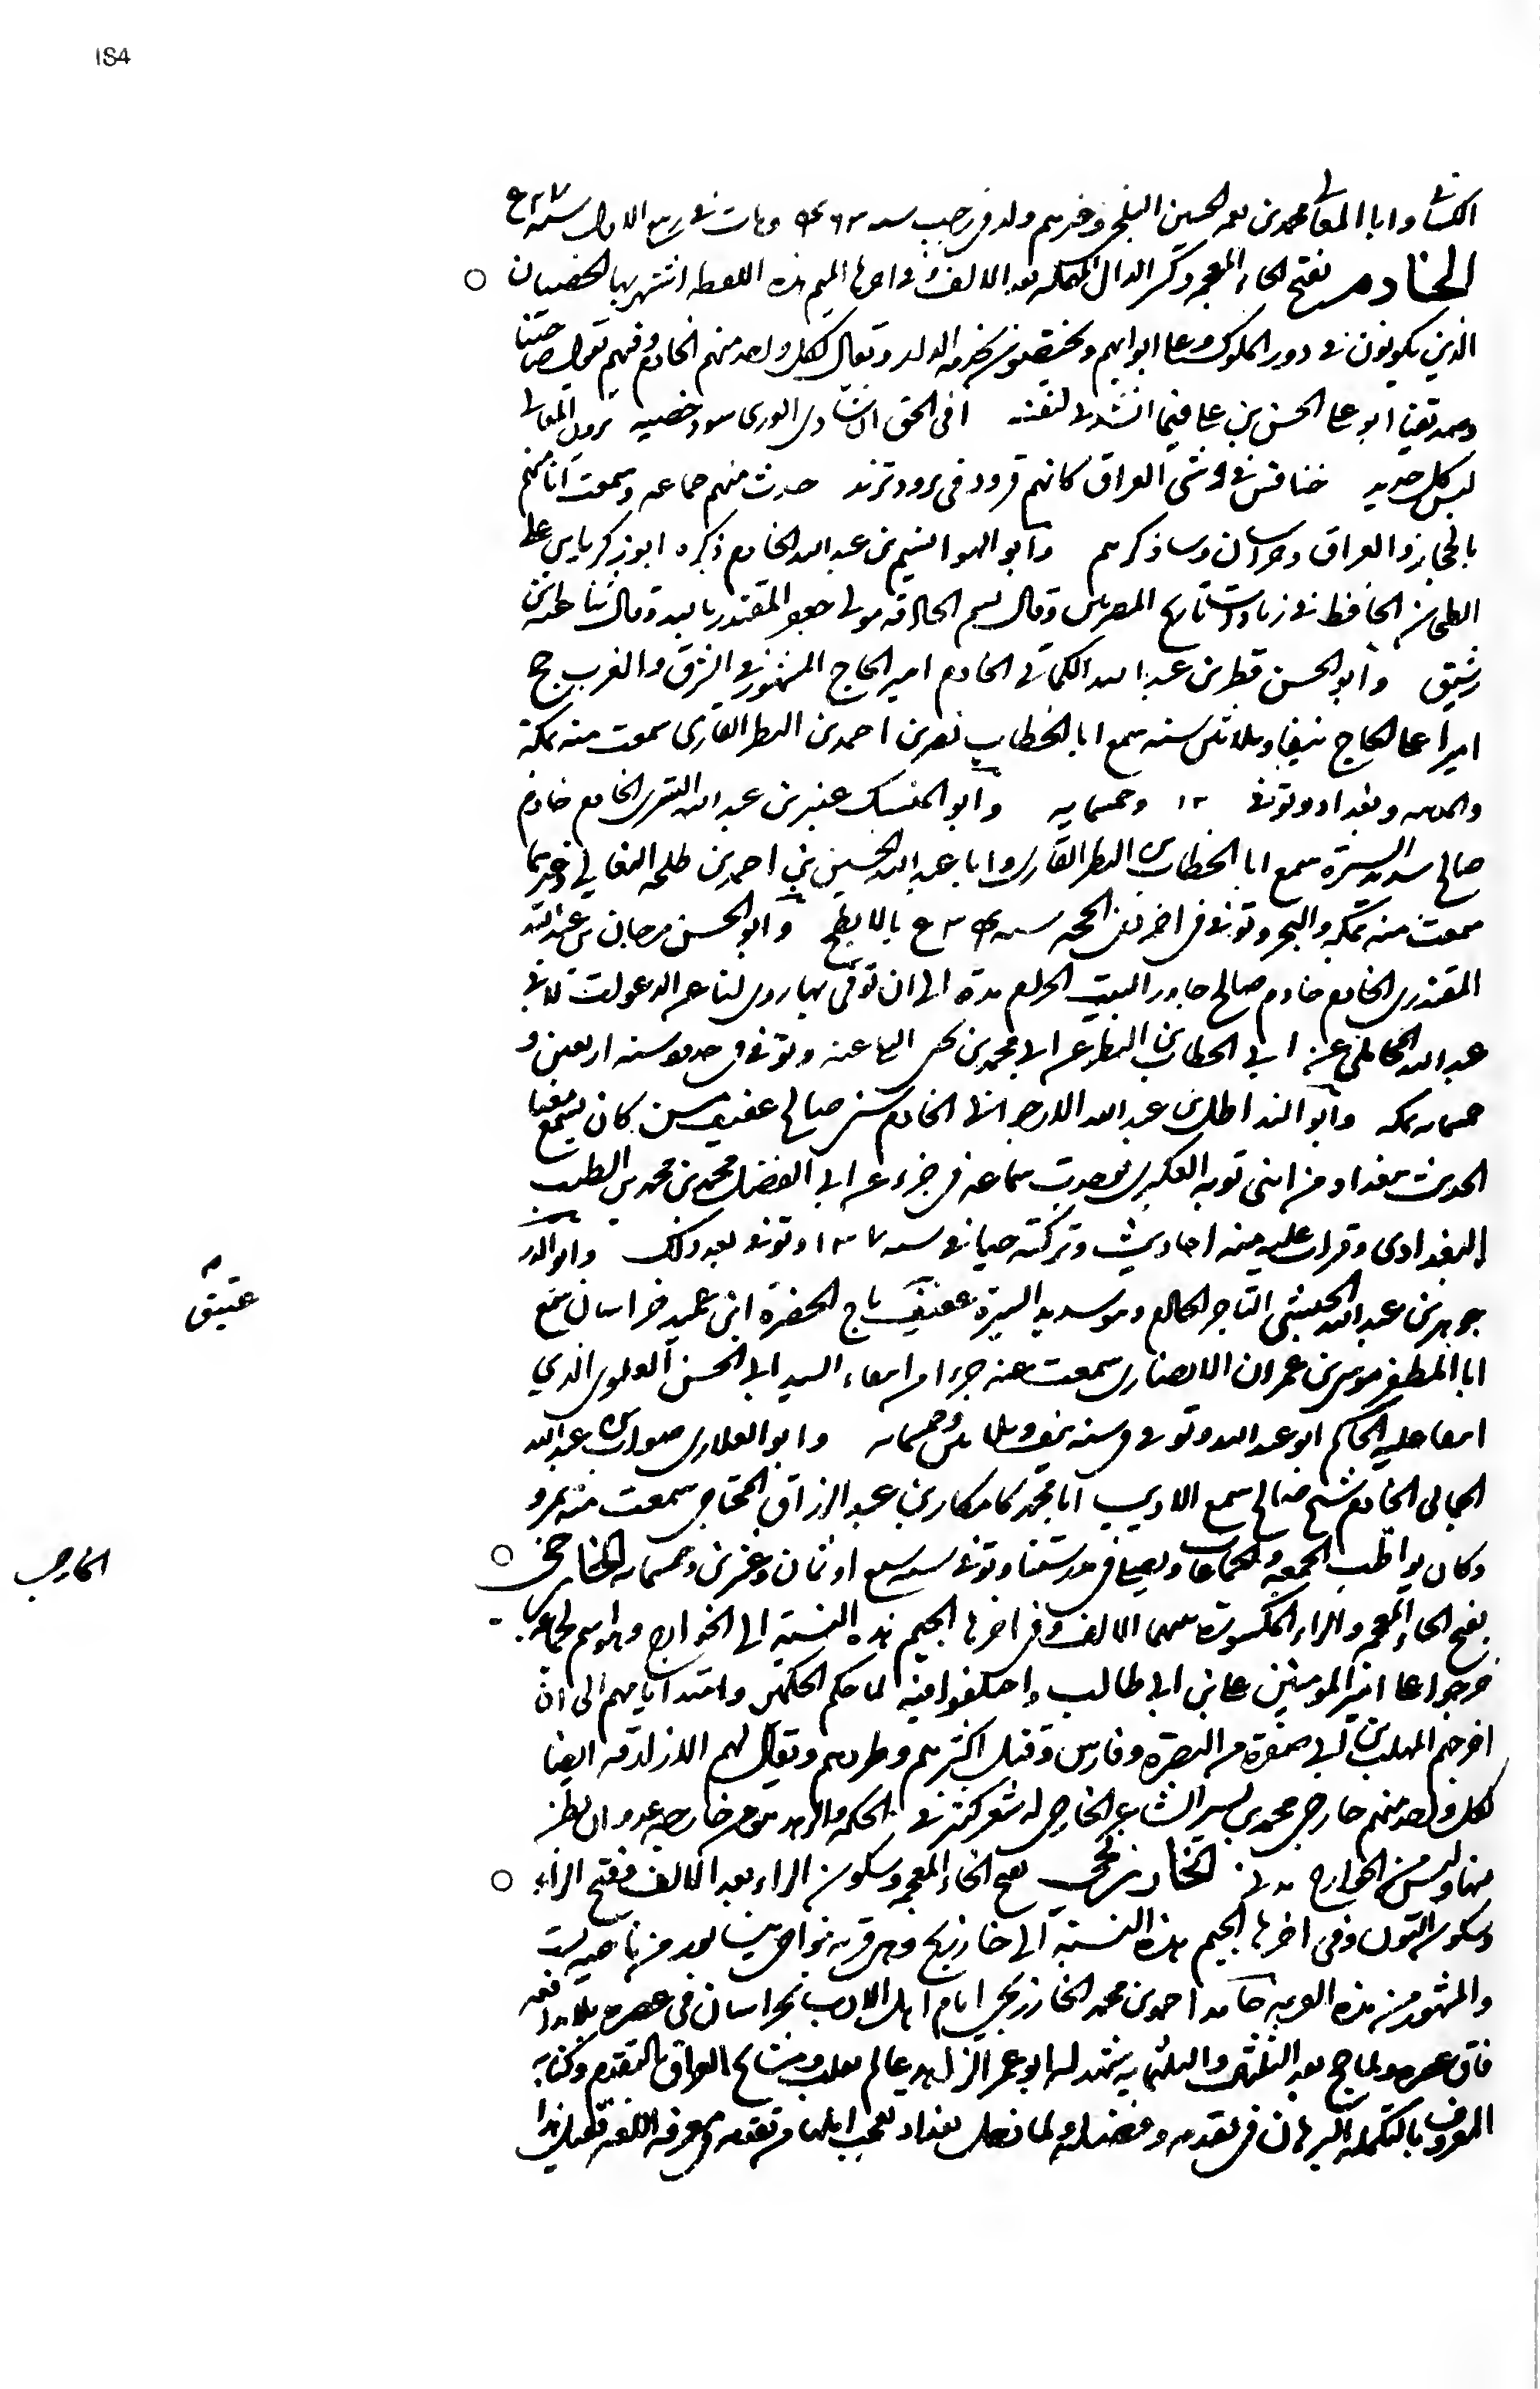 184
الكسائي وابا المعالي محمد بن محمد بن الحسين البلخي وغيرهم ولد في رجب سنه ومات في ربيع الاول سنه
الخادم بفتح الخاء المعجمه وكسر الدال المهمله بعد الالف وفي اخرها الميم هذه اللفظه اشتهر بها الخصيان
الذين يكونون في دور الملوك وعلى ابوابهم ويختصون بخدمه الدار ويقال لكل واحد منهم الخادم وفيهم يقول صاحبنا
وصديقنا ابو علي الحسن بن علي فيما انشدني لنفسه افي الحق ان الورى سود خصيه تروم المعالي
لبس كل حديد خنافس في وشي العراق كانهم قرود في برود تزيد حدث منهم جماعه وسمعت انا منهم
بالحجاز والعراق وخراسان وساذكرهم وابو الهوا نسيم بن عبد الله الخادم ذكره ابو زكريا يحيى بن علي
الطحان الحافظ في زيادات تاريخ المصريين وقال نسيم الخادم مولى جعفر المقتدر بالله وقال ثنا عنه ابن
رشيق وابو الحسن قطز بن عبد الله الكمالي الخادم امير الحاج المشهور في الشرق والغرب حج
اميرا على الحاج نيفا وثلاثين سنه سمع ابا الخطاب نصر بن احمد بن البطر القاري سمعت منه بمكة
والمدينه وبغداد وتوفي وخمسمايه وابو المسك عنبر بن عبد الله الستري الخادم خادم
صالح سديد السيرة سمع ابا الخطاب بن البطر القاري وابا عبد الله الحسين بن احمد بن طلحه النعالي وغيرهما
سمعت منه بمكه والبحر وتوفي في اخر ذي الحجه سنه بالابطح وابو الحسن مرجان بن عبد الله
المقتدري الخادم خادم صالح جاور البيت الحرام مدة الى ان توفي بها روى لنا عن
عبد الله المحاملي عن ابي الخطاب بن البطر عن ابي محمد بن يحيى البيع عنه وتوفي في حدود سنه اربعين و
خمسمايه بمكه وابو الندا طل بن عبد الله الارجواني الخادم شيخ صالح عفيف مسن كان يسمع معنا
الحديث ببغداد من ابني توبه العكبري فوجدت سماعه في جزء عن ابي الفضل محمد بن محمد بن الطيب
البغدادي وقرات عليه منه احاديث وتركته حيا في سنه وتوفي بعد ذلك وابو الدر
جوهر بن عبد الله الحبشي التاجر الخادم وهو سديد السيرة عفيف تاج الحضرة ابن عميد خراسان سمع
عتيق
ابا المظفر موسى بن عمران الانصاري سمعت منه جزءا من املاء السيد ابي الحسن العلوي الذي
املا عليه الحاكم ابو عبد الله وتوفي في سنه نيف وثلاثين وخمسمايه وابو العلاء صواب بن عبد الله
الجمالي الخادم شيخ صالح سمع الاديب ابا محمد كامكار بن عبد الرزاق المحتاجي سمعت منه بمرو
وكان يواظب الجمعه والجماعات ويصلي في مدرستنا وتوفي سنه سبع او ثمان وعشرين وخمسمايه الخارجي
الخارجي
بفتح الخاء المعجمه والراء المكسورة بينهما الالف وفي اخرها الجيم هذه النسبة الى الخوارج وهو اسم لجماعة
خرجوا على امير المؤمنين علي بن ابي طالب واختلفوا فيه لما حكم الحكمين وامتد ايامهم الى ان
اخرجهم المهلب بن ابي صفرة من البصرة وفارس وقتل اكثرهم وطردهم ويقال لهم الازارقه ايضا
لكل واحد منهم خارجي محمد بن بشير الشاعر الخارجي له شعر كثير في الحكمه والزهد هو من خارجه عدوان بطن
منها وليس من الخوارج الخارزنجي بفتح الخاء المعجمه وسكون الراء بعد الالف وفتح الزاء
وسكون النون وفي اخرها الجيم هذه النسبة الى خارزنج وهي قريه بنواحي نيسابور من ناحيه بشت
والمشهور من هذه القريه حامد احمد بن محمد الخارزنجي امام اهل الادب بخراسان في عصره بلا مدافعه
فاق عصره ولما حج بعد الثلثين والثلثمايه شهد له ابو عمر الزاهد غلام ثعلب ومشايخ العراق بالتقدم وكتابه
المعروف بالتكمله البرهان في تقدمه وفضله ولما دخل بغداد تعجب اهلها من تقدمه في معرفه اللغه فقيل هذا